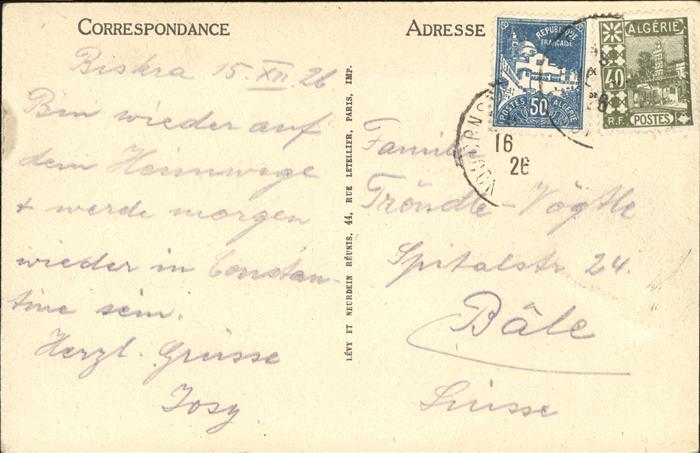 CORRESPONDANCE
Biskra 15. XII. 26
Bin wieder auf
dem Heimwege
+ werde morgen
wieder in Constan-
tine sein.
Herzl. Grüsse
Josy
LÉVY ET NEURDEIN RÉUNIS, 44, RUE LETELLIER, PARIS, IMP.
ADRESSE
RÉPUBLIQUE
FRANÇAISE
50
POSTES ALGÉRIE
ALGÉRIE
40
R.F. POSTES
16
26
Familie
Tröndle-Vögtle
Spitalstr. 24.
Bâle
Suisse